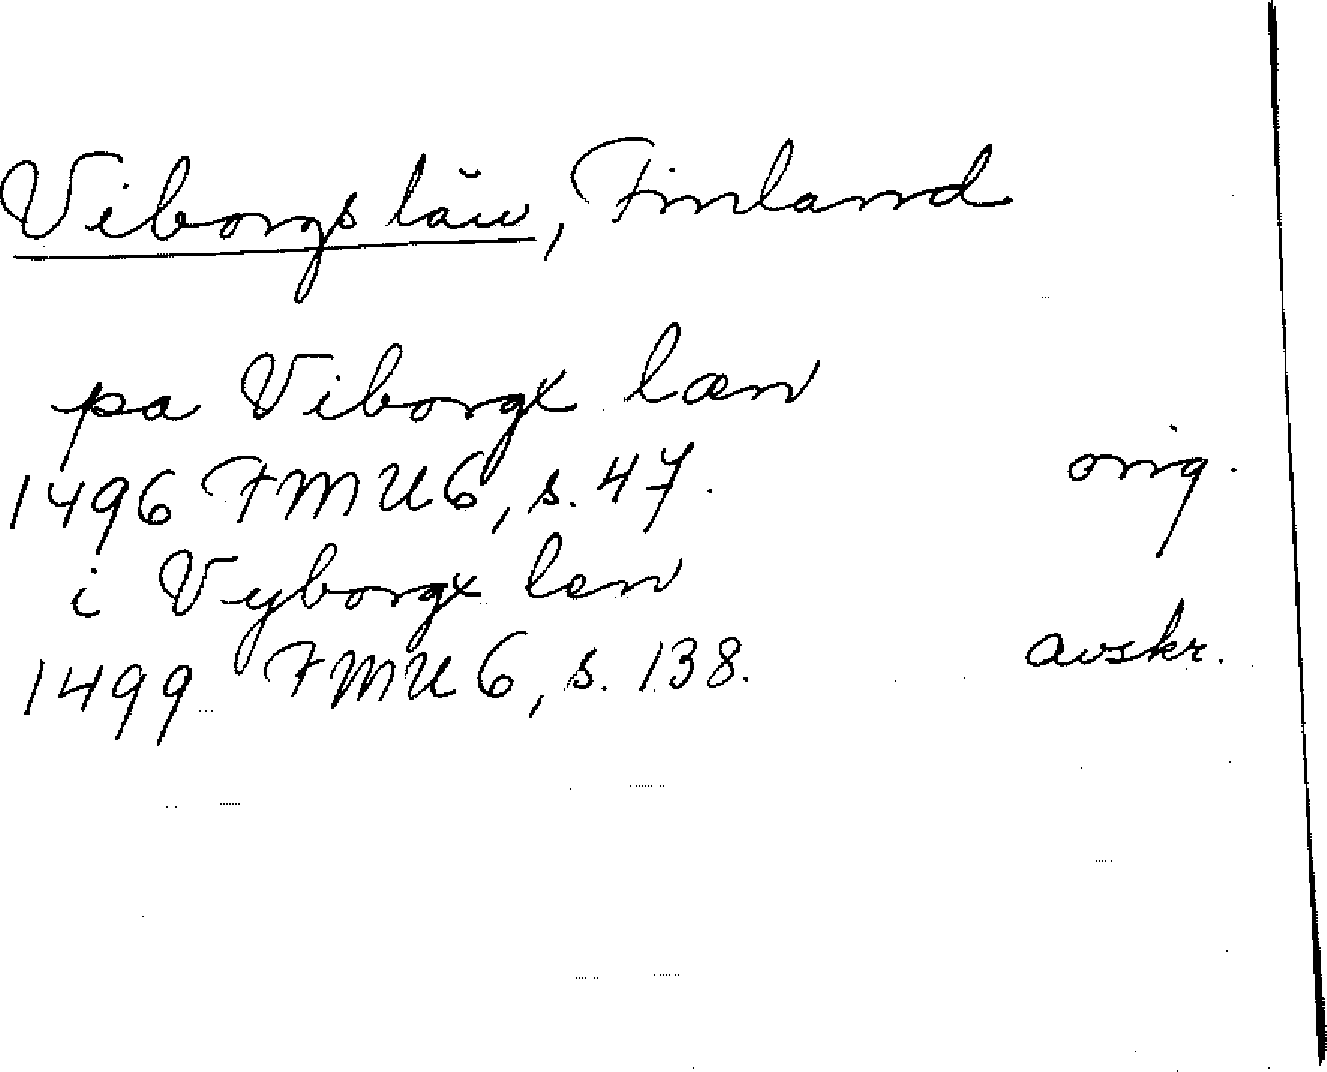 Viborgs län, Finland
pa Viborgx læn
1496 FMU 6, s. 47. orig.
i Vyborgx len
1499 FMU 6, s. 138. avskr.